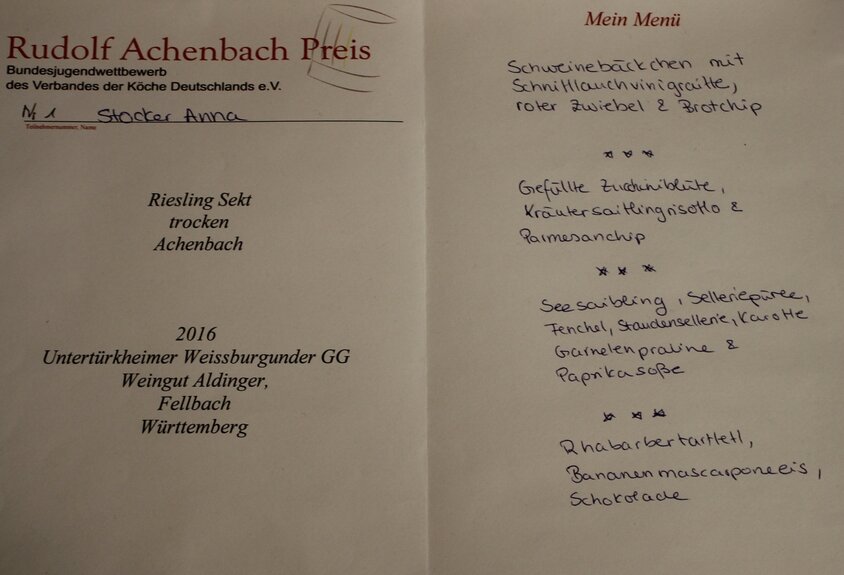 Rudolf Achenbach Preis
Bundesjugendwettbewerb
des Verbandes der Köche Deutschlands e.V.
Nr 1 Stocker Anna
Teilnehmernummer, Name
Riesling Sekt
trocken
Achenbach
2016
Untertürkheimer Weissburgunder GG
Weingut Aldinger,
Fellbach
Württemberg
Mein Menü
Schweinebäckchen mit
Schnittlauchvinigraitte,
roter Zwiebel & Brotchip
***
Gefüllte Zucchiniblüte,
Kräutersaitlingrisotto &
Parmesanchip
***
Seesaibling, Selleriepüree,
Fenchel, Staudensellerie, Karotte
Garnelenpraline &
Paprikasoße
***
Rhabarbertartlett,
Bananenmascarponeeis,
Schokolade